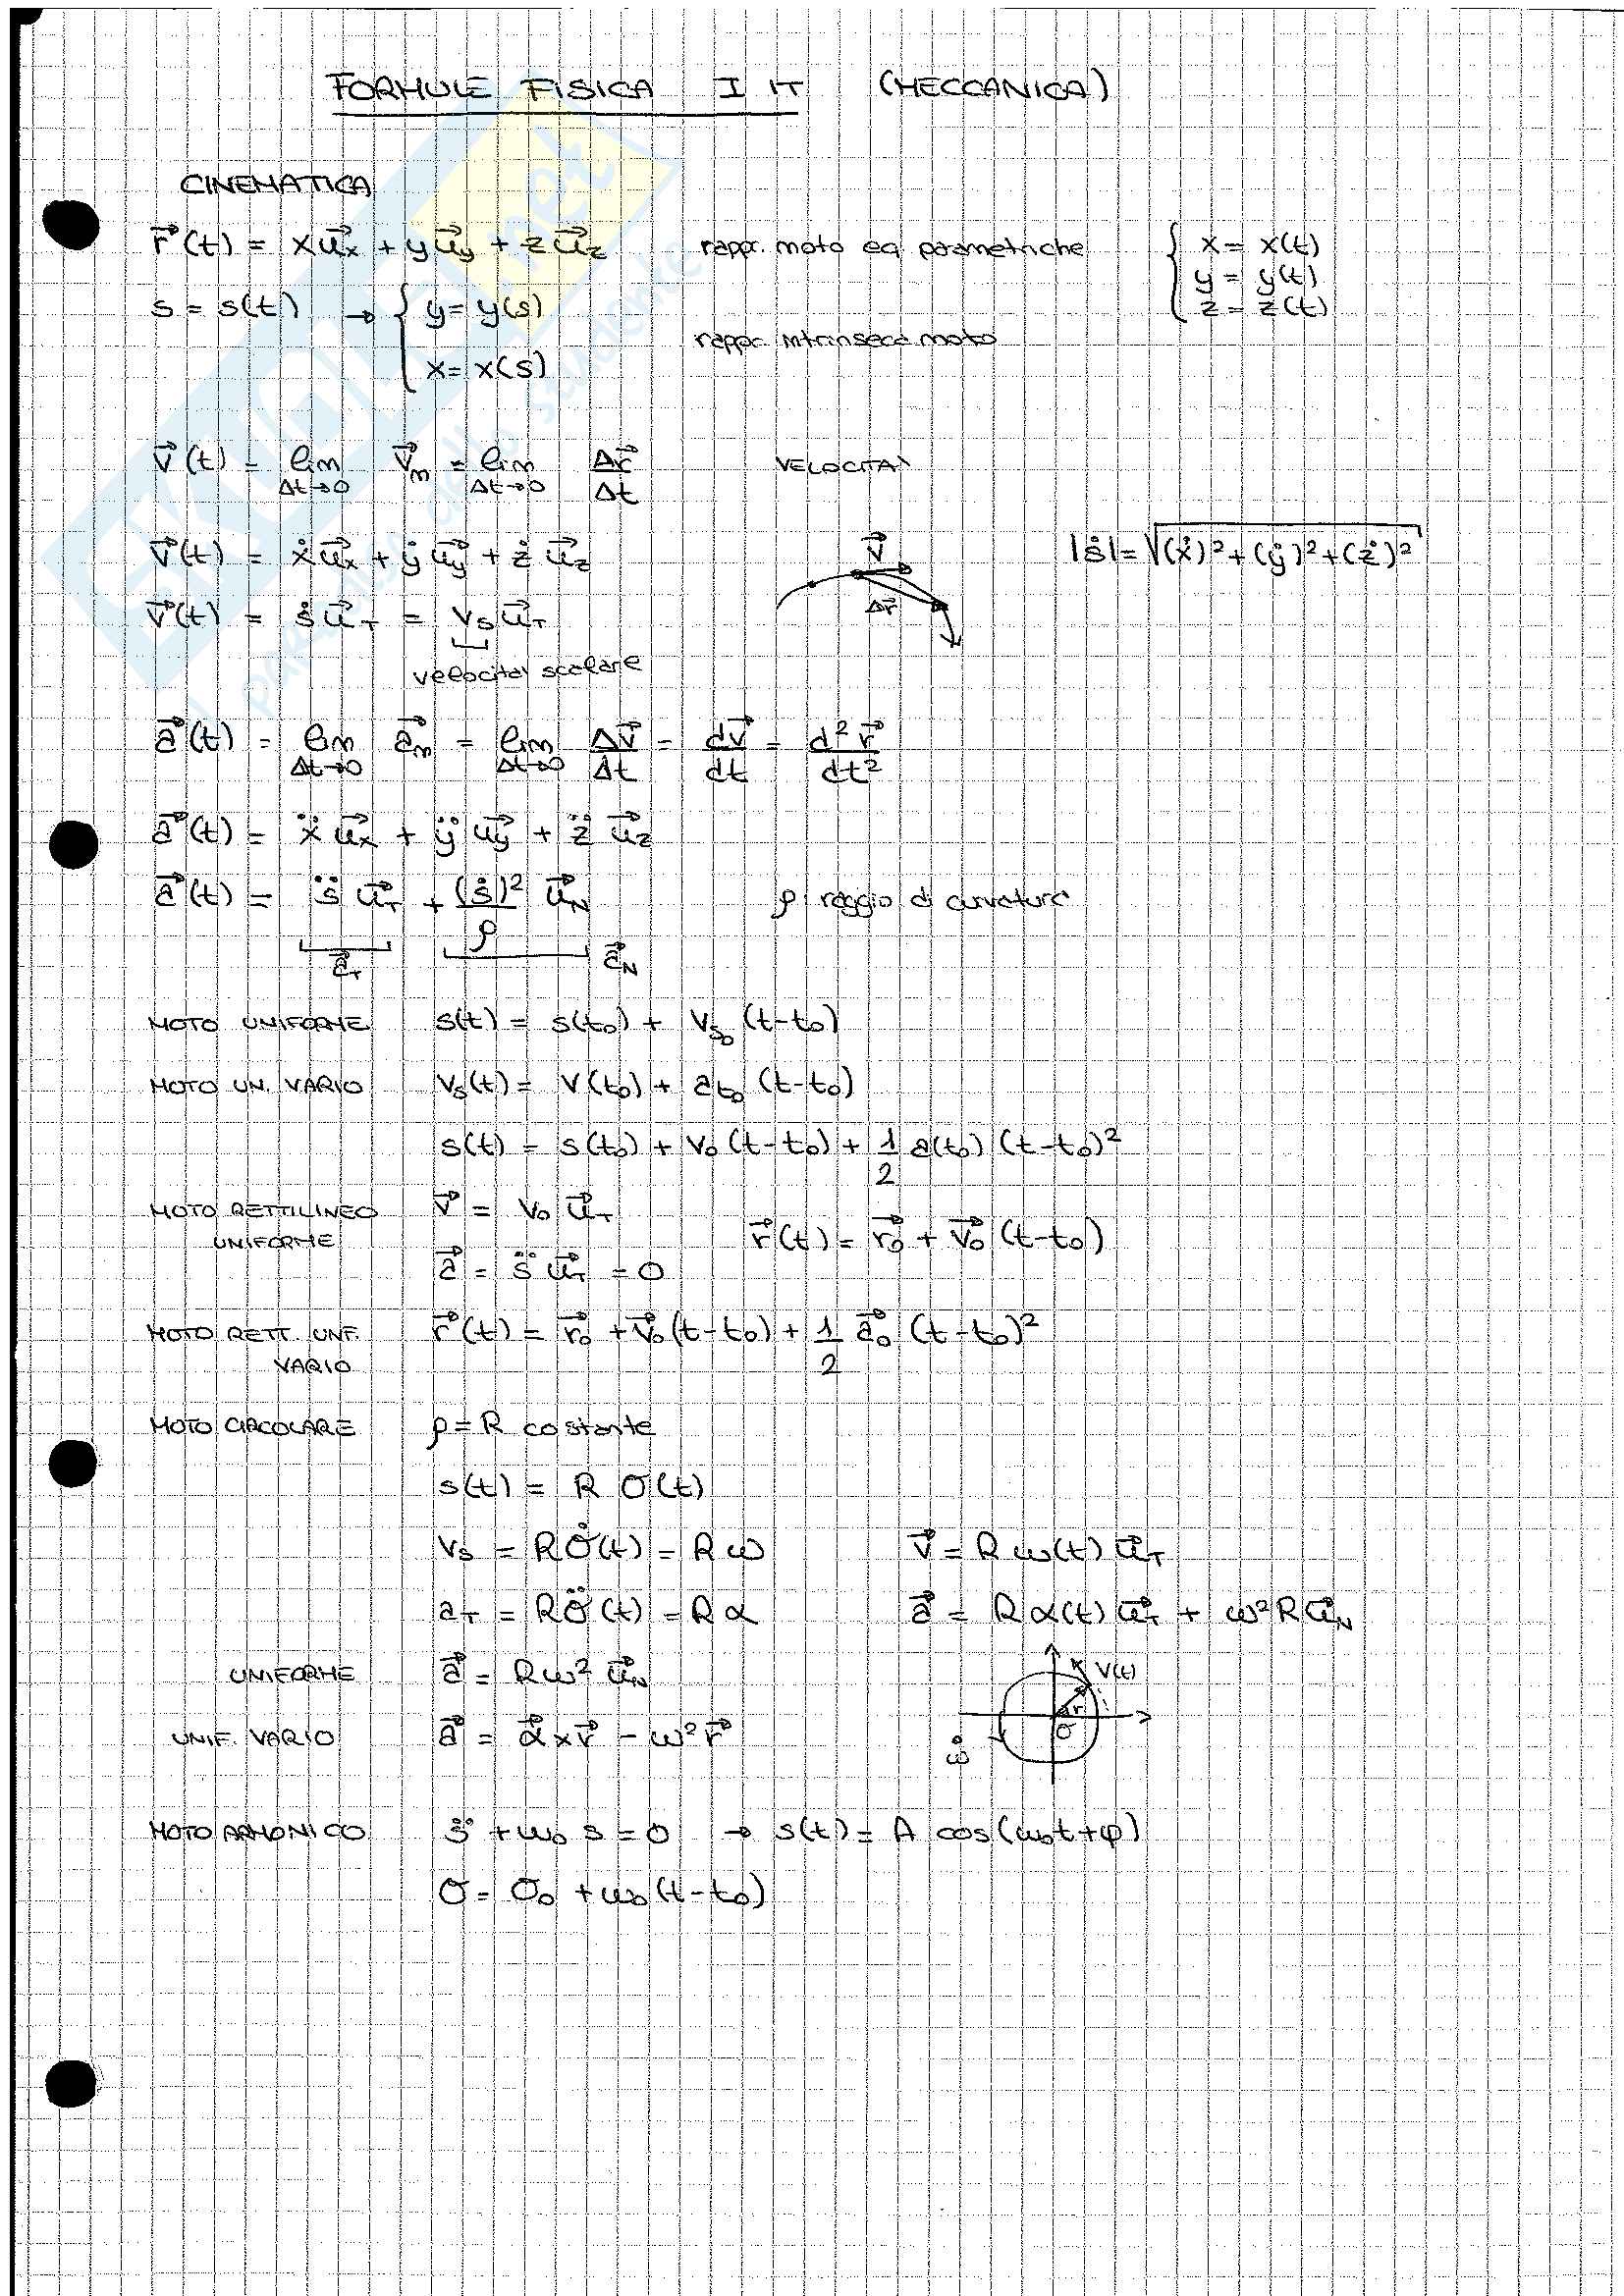 FORMULE FISICA I IT (MECCANICA)
CINEMATICA
r⃗(t) = x u⃗x + y u⃗y + z u⃗z rappr. moto eq parametriche { x = x(t)
y = y(t)
z = z(t)
s = s(t) → { y = y(s)
x = x(s)
rappr. intrinseca moto
v⃗(t) = lim Δt→0 v⃗m = lim Δt→0 Δr⃗/Δt VELOCITA'
v⃗(t) = ẋ u⃗x + ẏ u⃗y + ż u⃗z v⃗ Δr⃗ |ṡ| = √((ẋ)² + (ẏ)² + (ż)²)
v⃗(t) = ṡ u⃗T = vs u⃗T
velocita' scalare
a⃗(t) = lim Δt→0 a⃗m = lim Δt→0 Δv⃗/Δt = dv⃗/dt = d²r⃗/dt²
a⃗(t) = ẍ u⃗x + ÿ u⃗y + z̈ u⃗z
a⃗(t) = s̈ u⃗T + (ṡ)²/ρ u⃗N ρ raggio di curvatura
a⃗T a⃗N
MOTO UNIFORME s(t) = s(t₀) + vs₀ (t-t₀)
MOTO UN. VARIO vs(t) = v(t₀) + at₀ (t-t₀)
s(t) = s(t₀) + v₀ (t-t₀) + 1/2 a(t₀) (t-t₀)²
MOTO RETTILINEO UNIFORME v⃗ = v₀ u⃗T r⃗(t) = r⃗₀ + v⃗₀ (t-t₀)
a⃗ = s̈ u⃗T = 0
MOTO RETT. UNF. VARIO r⃗(t) = r⃗₀ + v⃗₀ (t-t₀) + 1/2 a⃗₀ (t-t₀)²
MOTO CIRCOLARE ρ = R costante
s(t) = R σ(t)
vs = R σ̇(t) = R ω v⃗ = R ω(t) u⃗T
aT = R σ̈(t) = R α a⃗ = R α(t) u⃗T + ω² R u⃗N
UNIFORME a⃗ = R ω² u⃗N v(t)
r
σ
UNIF. VARIO a⃗ = α⃗ x r⃗ - ω² r⃗ ω̊
MOTO ARMONICO s̈ + ω₀ s = 0 → s(t) = A cos(ω₀t+φ)
σ = σ₀ + ω₀ (t-t₀)